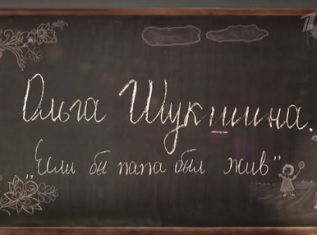 Ольга Шукшина.
"Если бы папа был жив"